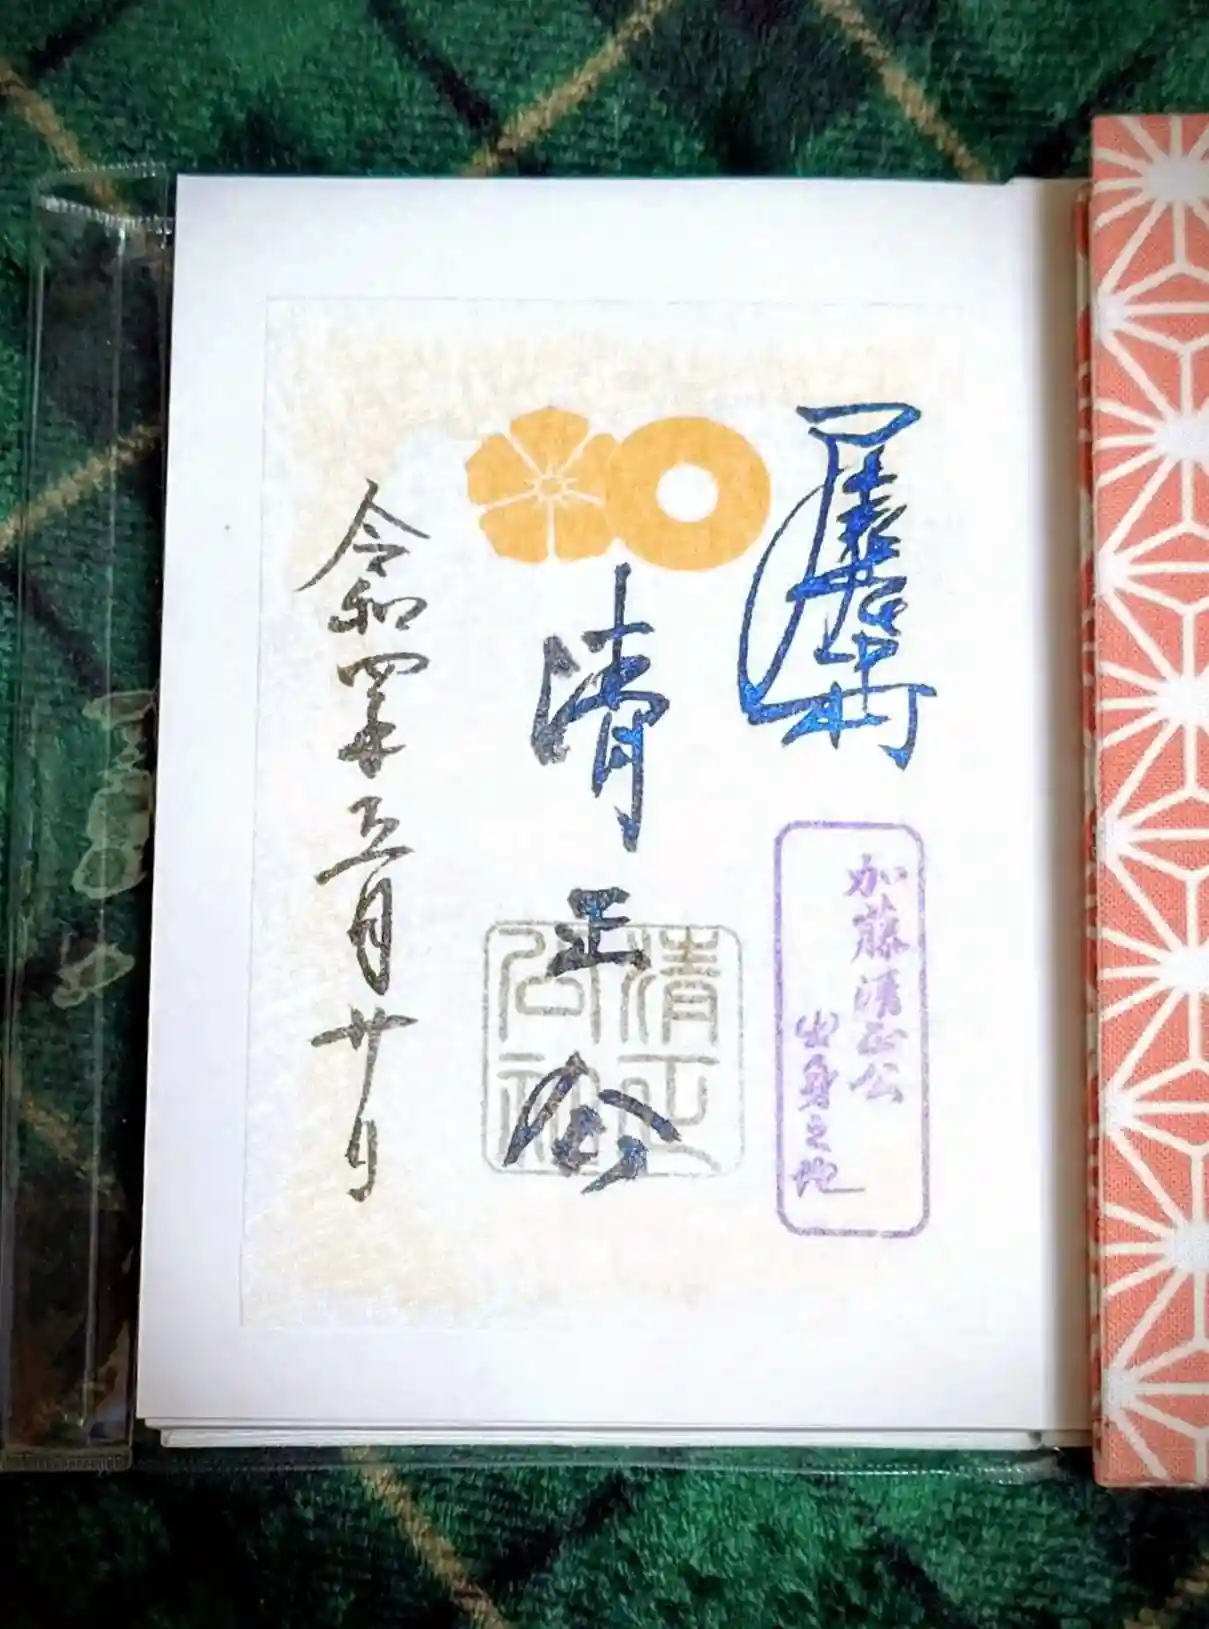 加藤清正公
出身之地
清正公
清正
公社
令和四年五月廿日